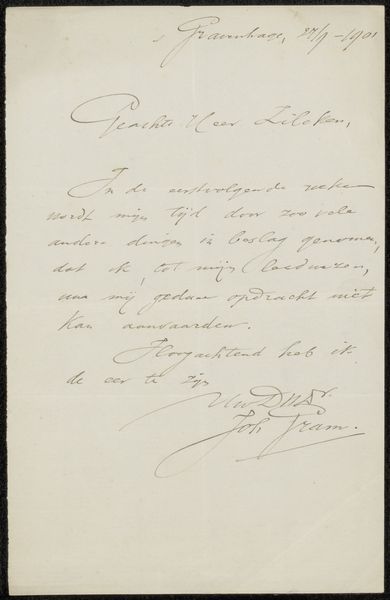 's Gravenhage, 27/9-1901
Geachte Heer Zilcken,
In de eerstvolgende weken
wordt mijn tijd door zoo vele
andere dingen in beslag genomen,
dat ik, tot mijn leedwezen,
uwe mij gedane opdracht niet
kan aanvaarden.
Hoogachtend heb ik
de eer te zijn
Uw DWDr.
Joh. Gram.